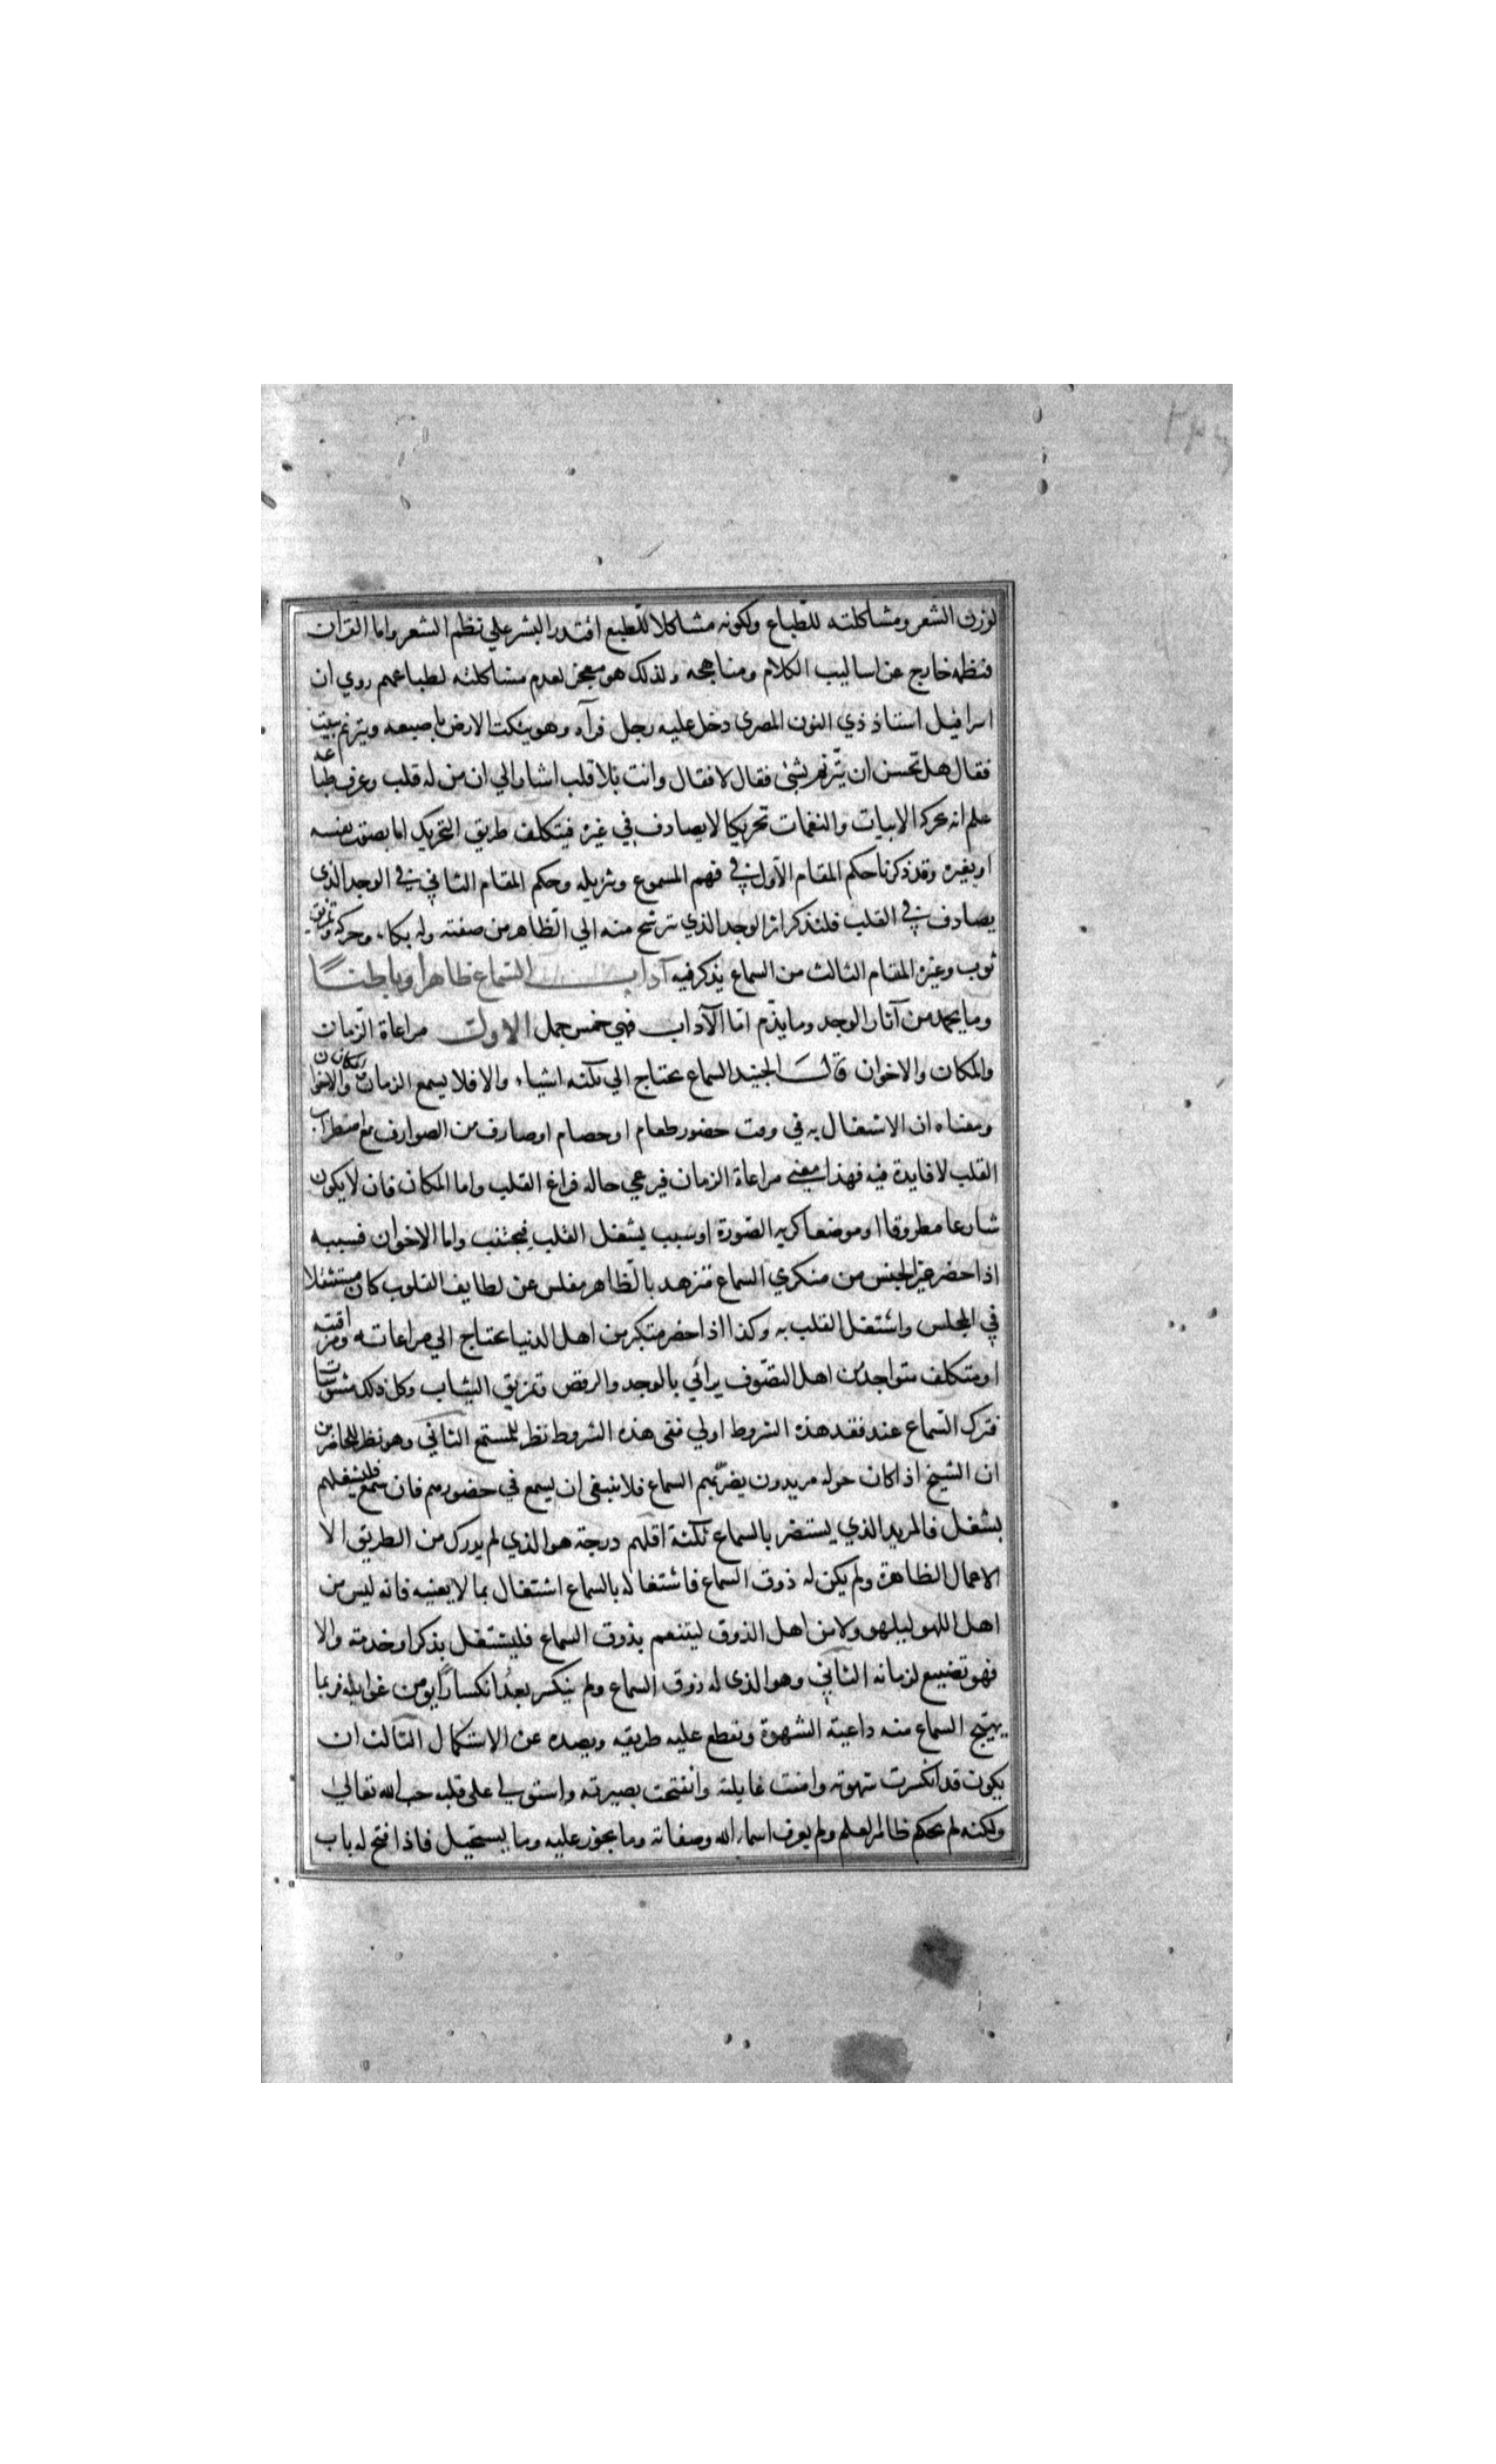 لوزن الشعر ومشاكلته للطباع ولكونه مشاكلا للطبع اقتدر البشر علي نظم الشعر واما القران
فنظمه خارج عن اساليب الكلام ومناهجه ولذلك هو معجز لعدم مشاكلته لطباعهم روي ان
اسرافيل استاذ ذي النون المصري دخل عليه رجل فرآه وهو ينكت الارض باصبعه ويترنم ببيت
فقال هل تحسن ان يترنم بشئ فقال لا فقال وانت بلا قلب اشار الي ان من له قلب وعرف طباعه
علم انه تحركه الابيات والنغمات تحريكا لا يصادف في غيره فيتكلف طريق التحريك اما بصوت نفسه
او بغيره وقد ذكرنا حكم المقام الاول في فهم المسموع وتنزيله وحكم المقام الثاني في الوجد الذي
يصادف في القلب فلنذكر اثر الوجد الذي ترشح منه الي الظاهر من صفته وله بكاء وحركه وتمزيق
ثوب وغيره المقام الثالث من السماع يذكر فيه آداب السماع ظاهرا وباطنا
وما يحمد من آثار الوجد وما يذم اما الآداب فهي خمس جمل الاولي مراعاة الزمان
والمكان والاخوان قال الجنيد السماع يحتاج الي ثلثه اشياء والا فلا يسمع الزمان والمكان والاخوان
ومعناه ان الاشتغال به في وقت حضور طعام او خصام او صارف من الصوارف مع اضطراب
القلب لا فايدة فيه فهذا معني مراعاة الزمان فيرعي حاله فراغ القلب واما المكان فان لا يكون
شارعا مطروقا او موضعا كريه الصورة او سبب يشغل القلب فيجتنب واما الاخوان فسببه
اذا حضر غير الجنس من منكري السماع متزهد بالظاهر مفلس عن لطايف القلوب كان مستثقلا
في المجلس واشتغل القلب به وكذا اذا حضر متكبر من اهل الدنيا يحتاج الي مراعاته ومراقبته
او متكلف متواجد من اهل التصوف يرائي بالوجد والرقص وتمزيق الثياب وكل ذلك مشوشات
فترك السماع عند فقد هذه الشروط اولي ففي هذه الشروط نظر للمستمع الثاني وهو نظر للحاضرين
ان الشيخ اذا كان حوله مريدون يضر بهم السماع فلا ينبغي ان يسمع في حضورهم فان سمع فليشغلهم
بشغل فالمريد الذي يستضر بالسماع ثلثة اقلهم درجة هو الذي لم يدرك من الطريق الا
الاعمال الظاهرة ولم يكن له ذوق السماع فاشتغاله بالسماع اشتغال بما لا يعنيه فانه ليس من
اهل اللهو ليلهو ولا من اهل الذوق ليتنعم بذوق السماع فليشتغل بذكر او خدمة والا
فهو تضييع لزمانه الثاني وهو الذي له ذوق السماع ولم ينكسر بعد انكسارا يومن غوايله فربما
يهيج السماع منه داعية الشهوة ونقطع عليه طريقه ويصده عن الاستكمال الثالث ان
يكون قد انكسرت شهوته وامنت غايلته وانفتحت بصيرته واستولي على قلبه حب الله تعالي
ولكنه لم يحكم ظاهر العلم ولم يعرف اسماء الله وصفاته وما يجوز عليه وما يستحيل فاذا فتح له باب